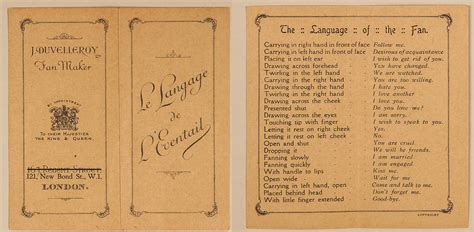 J. DUVELLEROY
Fan Maker
BY APPOINTMENT
TO THEIR MAJESTIES
THE KING & QUEEN.
167, Regent Street
121, New Bond St., W.1.
LONDON.
Le Langage
de
L'Eventail
The :: Language :: of :: the :: Fan.
Carrying in right hand in front of face - Follow me.
Carrying in left hand in front of face - Desirous of acquaintance
Placing it on left ear - I wish to get rid of you.
Drawing across forehead - You have changed.
Twirling in the left hand - We are watched.
Carrying in the right hand - You are too willing.
Drawing through the hand - I hate you.
Twirling in the right hand - I love another
Drawing across the cheek - I love you.
Presented shut - Do you love me?
Drawing across the eyes - I am sorry.
Touching tip with finger - I wish to speak to you.
Letting it rest on right cheek - Yes.
Letting it rest on left cheek - No.
Open and shut - You are cruel.
Dropping it - We will be friends.
Fanning slowly - I am married.
Fanning quickly - I am engaged.
With handle to lips - Kiss me.
Open wide - Wait for me
Carrying in left hand, open - Come and talk to me.
Placed behind head - Don't forget me.
With little finger extended - Good-bye.
COPYRIGHT